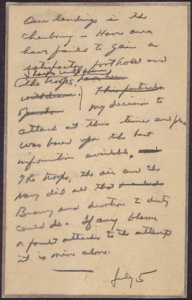 Our landings in the
Cherbourg - Havre area
have failed to gain a
satisfactory foothold and
the troops
My decision to
attack at this time and place
was based upon the best
information available.
The troops, the air and the
navy did all that
Bravery and devotion to duty
could do. If any blame
or fault attaches to the attempt
it is mine alone.
July 5